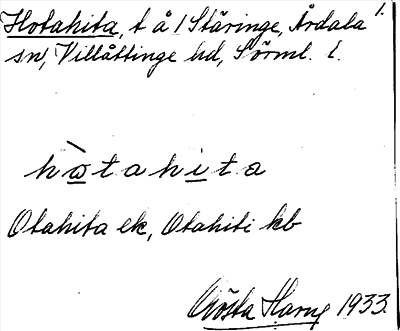 Hotahita, t å / Stäringe, Årdala 1.
sn, Villåttinge hd, Sörml. l.
hòtahita
Otahita ek, Otahiti kb
Gösta Harug 1933.